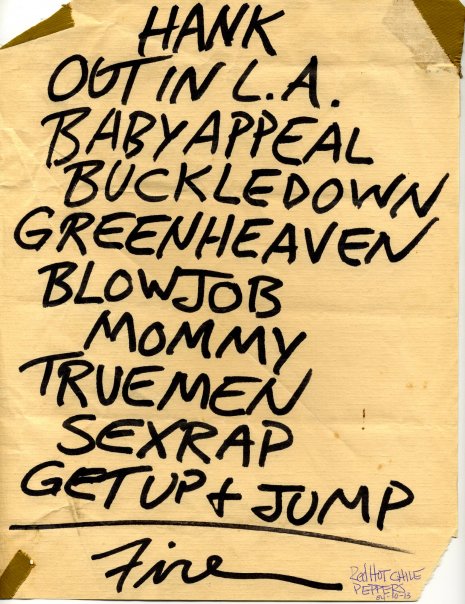 HANK
OUT IN L.A.
BABY APPEAL
BUCKLEDOWN
GREENHEAVEN
BLOWJOB
MOMMY
TRUEMEN
SEXRAP
GET UP & JUMP
Fire
Red HOT CHILE
PEPPERS
84-10-13